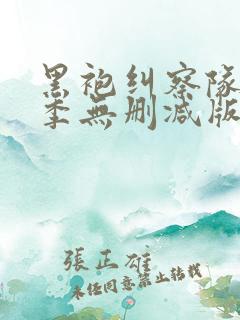 黑袍纠察队
季無删减版
張正雄
未经同意禁止转载